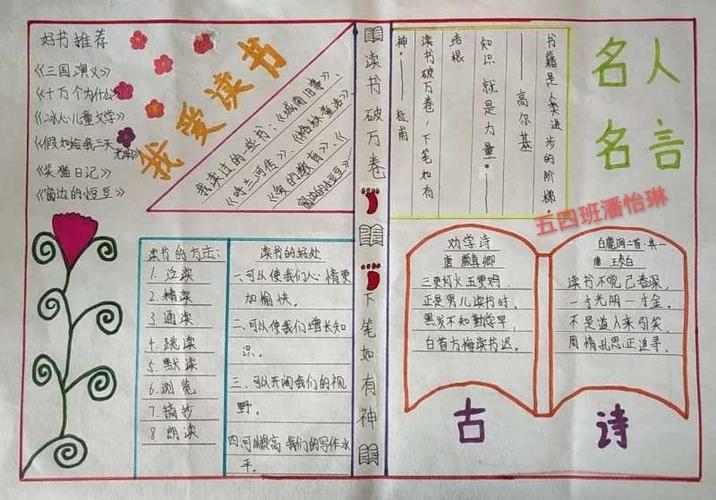 好书推荐
《三国演义》
《十万个为什么》
《冰心儿童文学》
《假如给我三天光明》
《笑猫日记》
《窗边的小豆豆》
我爱读书
我读过的些书:《城南旧事》、
《呼兰河传》、《格林童话》、
《爱的教育》、
《窗边的小豆豆》
读书破万卷
下笔如有神
书籍是人类进步的阶梯。
——高尔基
知识就是力量。——
培根
读书破万卷,下笔如有
神。——杜甫
名人
名言
五四班潘怡琳
读书的方法:
1.泛读
2.精读
3.通读
4.跳读
5.默读
6.浏览
7.摘抄
8.朗读
读书的好处
一、可以使我们心情更
加愉快。
二、可以使我们增长知
识。
三、可以开阔我们的视
野。
四、可以提高我们的写作水
平。
劝学诗
唐 颜真卿
三更灯火五更鸡,
正是男儿读书时,
黑发不知勤学早,
白首方悔读书迟。
白鹿洞二首·其一
唐 王贞白
读书不觉已春深,
一寸光阴一寸金。
不是道人来引笑,
周情孔思正追寻。
古诗